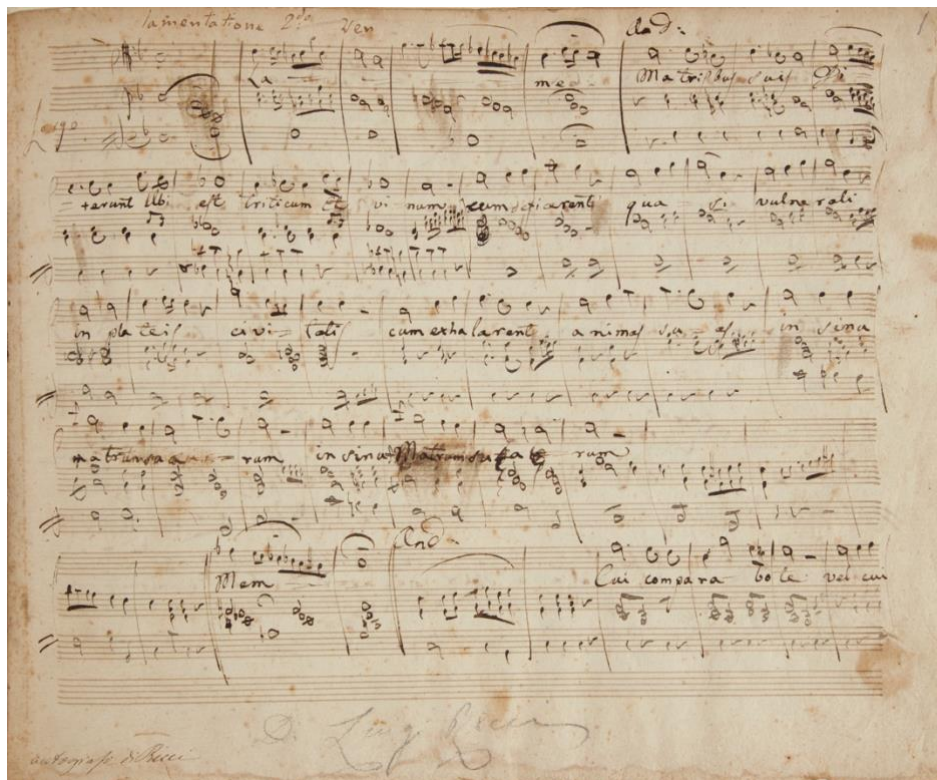 lamentatione 2da Ven And: 1
La med Matribus suis Di
Largo
=xerunt Ubi est triticum et vi num cum deficerent qua si vulnerati
in plateis civi=tatis cum exhalarent animas su=as in sinu
matrum sua=rum in sinu Matrum sua rum
And:
Mem Cui compara bo te vel cui
D. Luigi Ricci
autografo di Ricci